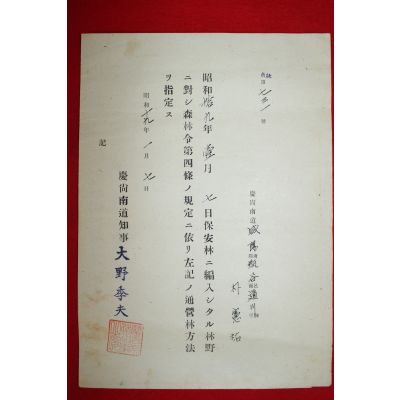 號
慶尚南道咸
昭和拾九年壹月七日保安林ニ編入シタル林野
ニ對シ森林令第四條ノ規定ニ依リ左記ノ通營林方法
ヲ指定ス
昭和十九年一月七日
慶尚南道知事大野季夫
記